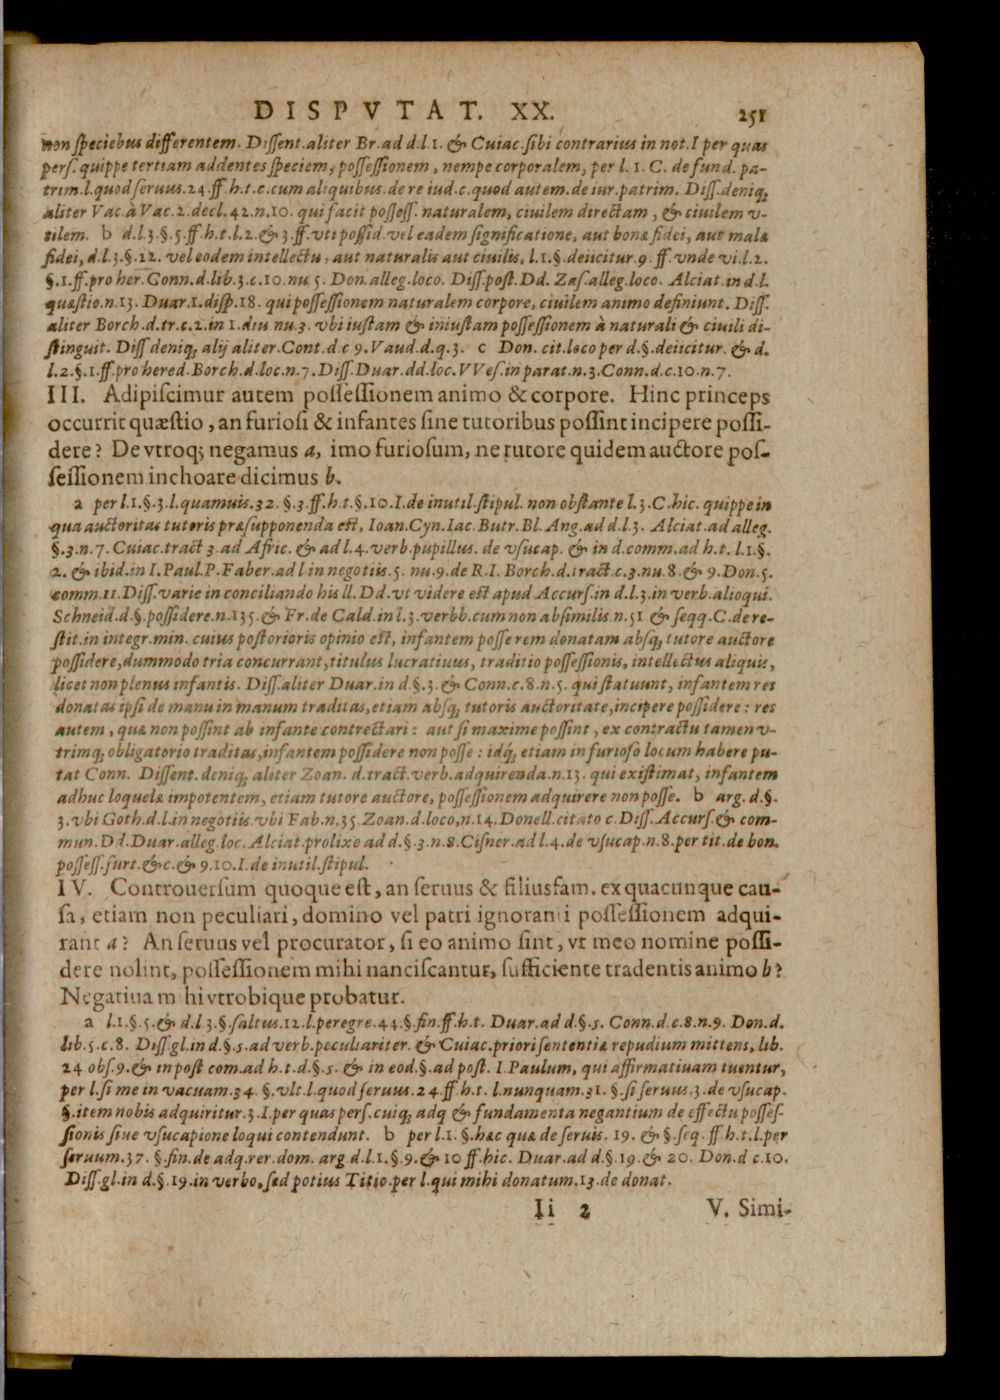 DISPVTAT. XX. 251
non speciebus differentem. Dissent.aliter Br.ad d.l.1. & Cuiac.sibi contrarius in not.I per quas
pers. quippe tertiam addentes speciem, possessionem, nempe corporalem, per l. 1. C. de fund. pa-
trim.l.quod seruus.24.ff.h.t.c.cum aliquibus.de re iud.c.quod autem.de iur.patrim. Diss.deniq;
aliter Vac.à Vac.2.decl.42.n.10. qui facit possess. naturalem, ciuilem directam, & ciuilem v-
tilem. b d.l.3.§.5.ff.h.t.l.2.&.3.ff.vti possid.vel eadem significatione, aut bonæ fidei, aut malæ
fidei, d.l.3.§.22. vel eodem intellectu, aut naturalis aut ciuilis, l.1.§.deiicitur.9.ff.vnde vi.l.2.
§.1.ff.pro her.Conn.d.lib.3.c.10.nu 5. Don.alleg.loco. Diss.post.Dd. Zas.alleg.loco. Alciat.in d.l.
quæstio.n.13. Duar.1.disp.18. qui possessionem naturalem corpore, ciuilem animo definiunt. Diss.
aliter Borch.d.tr.c.2.in 1.diu nu.3. vbi iustam & iniustam possessionem à naturali & ciuili di-
stinguit. Diss deniq; alij aliter.Cont.d.c 9.Vaud.d.q.3. c Don. cit.loco per d.§.deiicitur. & d.
l.2.§.1.ff.pro hered.Borch.d.loc.n.7.Diss.Duar.dd.loc.VVes.in parat.n.3.Conn.d.c.10.n.7.
III. Adipiscimur autem possessionem animo & corpore. Hinc princeps
occurrit quæstio, an furiosi & infantes sine tutoribus possint incipere possi-
dere? De vtroq; negamus a, imo furiosum, ne tutore quidem auctore pos-
sessionem inchoare dicimus b.
a per l.1.§.3.l.quamuis.32. §.3.ff.h.t.§.10.I.de inutil.stipul. non obstante l.3.C.hic. quippe in
qua auctoritas tutoris præsupponenda est, Ioan.Cyn.Iac.Butr.Bl.Ang.ad d.l.3. Alciat.ad alleg.
§.3.n.7. Cuiac.tract 3.ad Afric. & ad l.4.verb.pupillus. de vsucap. & in d.comm.ad h.t. l.1.§.
2. & ibid.in I.Paul.P.Faber.ad l in negotiis.5. nu.9.de R.I. Borch.d.tract.c.3.nu.8.& 9.Don.5.
comm.11.Diss.varie in conciliando his ll. Dd.vt videre est apud Accurs.in d.l.3.in verb.alioqui.
Schneid.d.§.possidere.n.135.& Fr.de Cald.in l.3.verbb.cum non absimilis.n.51 & seqq.C.de re-
stit.in integr.min. cuius postorioris opinio est, infantem posse rem donatam absq; tutore auctore
possidere,dummodo tria concurrant,titulus lucratiuus, traditio possessionis, intellectus aliquis,
licet non plenus infantis. Diss.aliter Duar.in d.§.3.& Conn.c.8.n.5. qui statuunt, infantem res
donatas ipsi de manu in manum traditas,etiam absq; tutoris auctoritate,incipere possidere: res
autem, quæ non possint ab infante contrectari: aut si maxime possint, ex contractu tamen v-
trimq; obligatorio traditas,infantem possidere non posse: idq; etiam in furioso locum habere pu-
tat Conn. Dissent.deniq; aliter Zoan. d.tract.verb.adquirenda.n.13. qui existimat, infantem
adhuc loquelæ impotentem, etiam tutore auctore, possessionem adquirere non posse. b arg. d.§.
3.vbi Goth.d.l.in negotiis.vbi Fab.n.35.Zoan.d.loco,n.14.Donell.citato c.Diss.Accurs.& com-
mun.Dd.Duar.alleg.loc.Alciat.prolixe ad d.§.3.n.8.Cisner.ad l.4.de vsucap.n.8.per tit.de bon.
possess.furt.&c.& 9.10.I.de inutil.stipul.
IV. Controuersum quoque est, an seruus & filiusfam. ex quacunque cau-
sa, etiam non peculiari, domino vel patri ignoranti possessionem adqui-
rant a? An seruus vel procurator, si eo animo sint, vt meo nomine possi-
dere nolint, possessionem mihi nanciscantur, sufficiente tradentis animo b?
Negatiuam hi vtrobique probatur.
a l.1.§.5.& d.l 3.§.saltus.12.l.peregre.44.§.fin.ff.h.t. Duar.ad d.§.5. Conn.d.c.8.n.9. Don.d.
lib.5.c.8. Diss.gl.in d.§.5.ad verb.peculiariter. & Cuiac.priori sententiæ repudium mittens, lib.
24 obs.9.& in post com.ad h.t.d.§.5.& in eod.§.ad post. I.Paulum, qui affirmatiuam tuentur,
per l.si me in vacuam.34. §.vlt.l.quod seruus.24.ff.h.t. l.nunquam.31. §.si seruus.3.de vsucap.
§.item nobis adquiritur.3.I.per quas pers.cuiq; adq & fundamenta negantium de effectu posses-
sionis siue vsucapione loqui contendunt. b per l.1. §.hæc quæ de seruis. 19. & §.seq. ff.h.t.l.per
seruum.37. §.fin.de adq.rer.dom. arg d.l.1.§.9.& 10 ff.hic. Duar.ad d.§.19.& 20. Don.d c.10.
Diss.gl.in d.§.19.in verbo, sed potius Titio.per l.qui mihi donatum.13.de donat.
Ii 2 V. Simi-